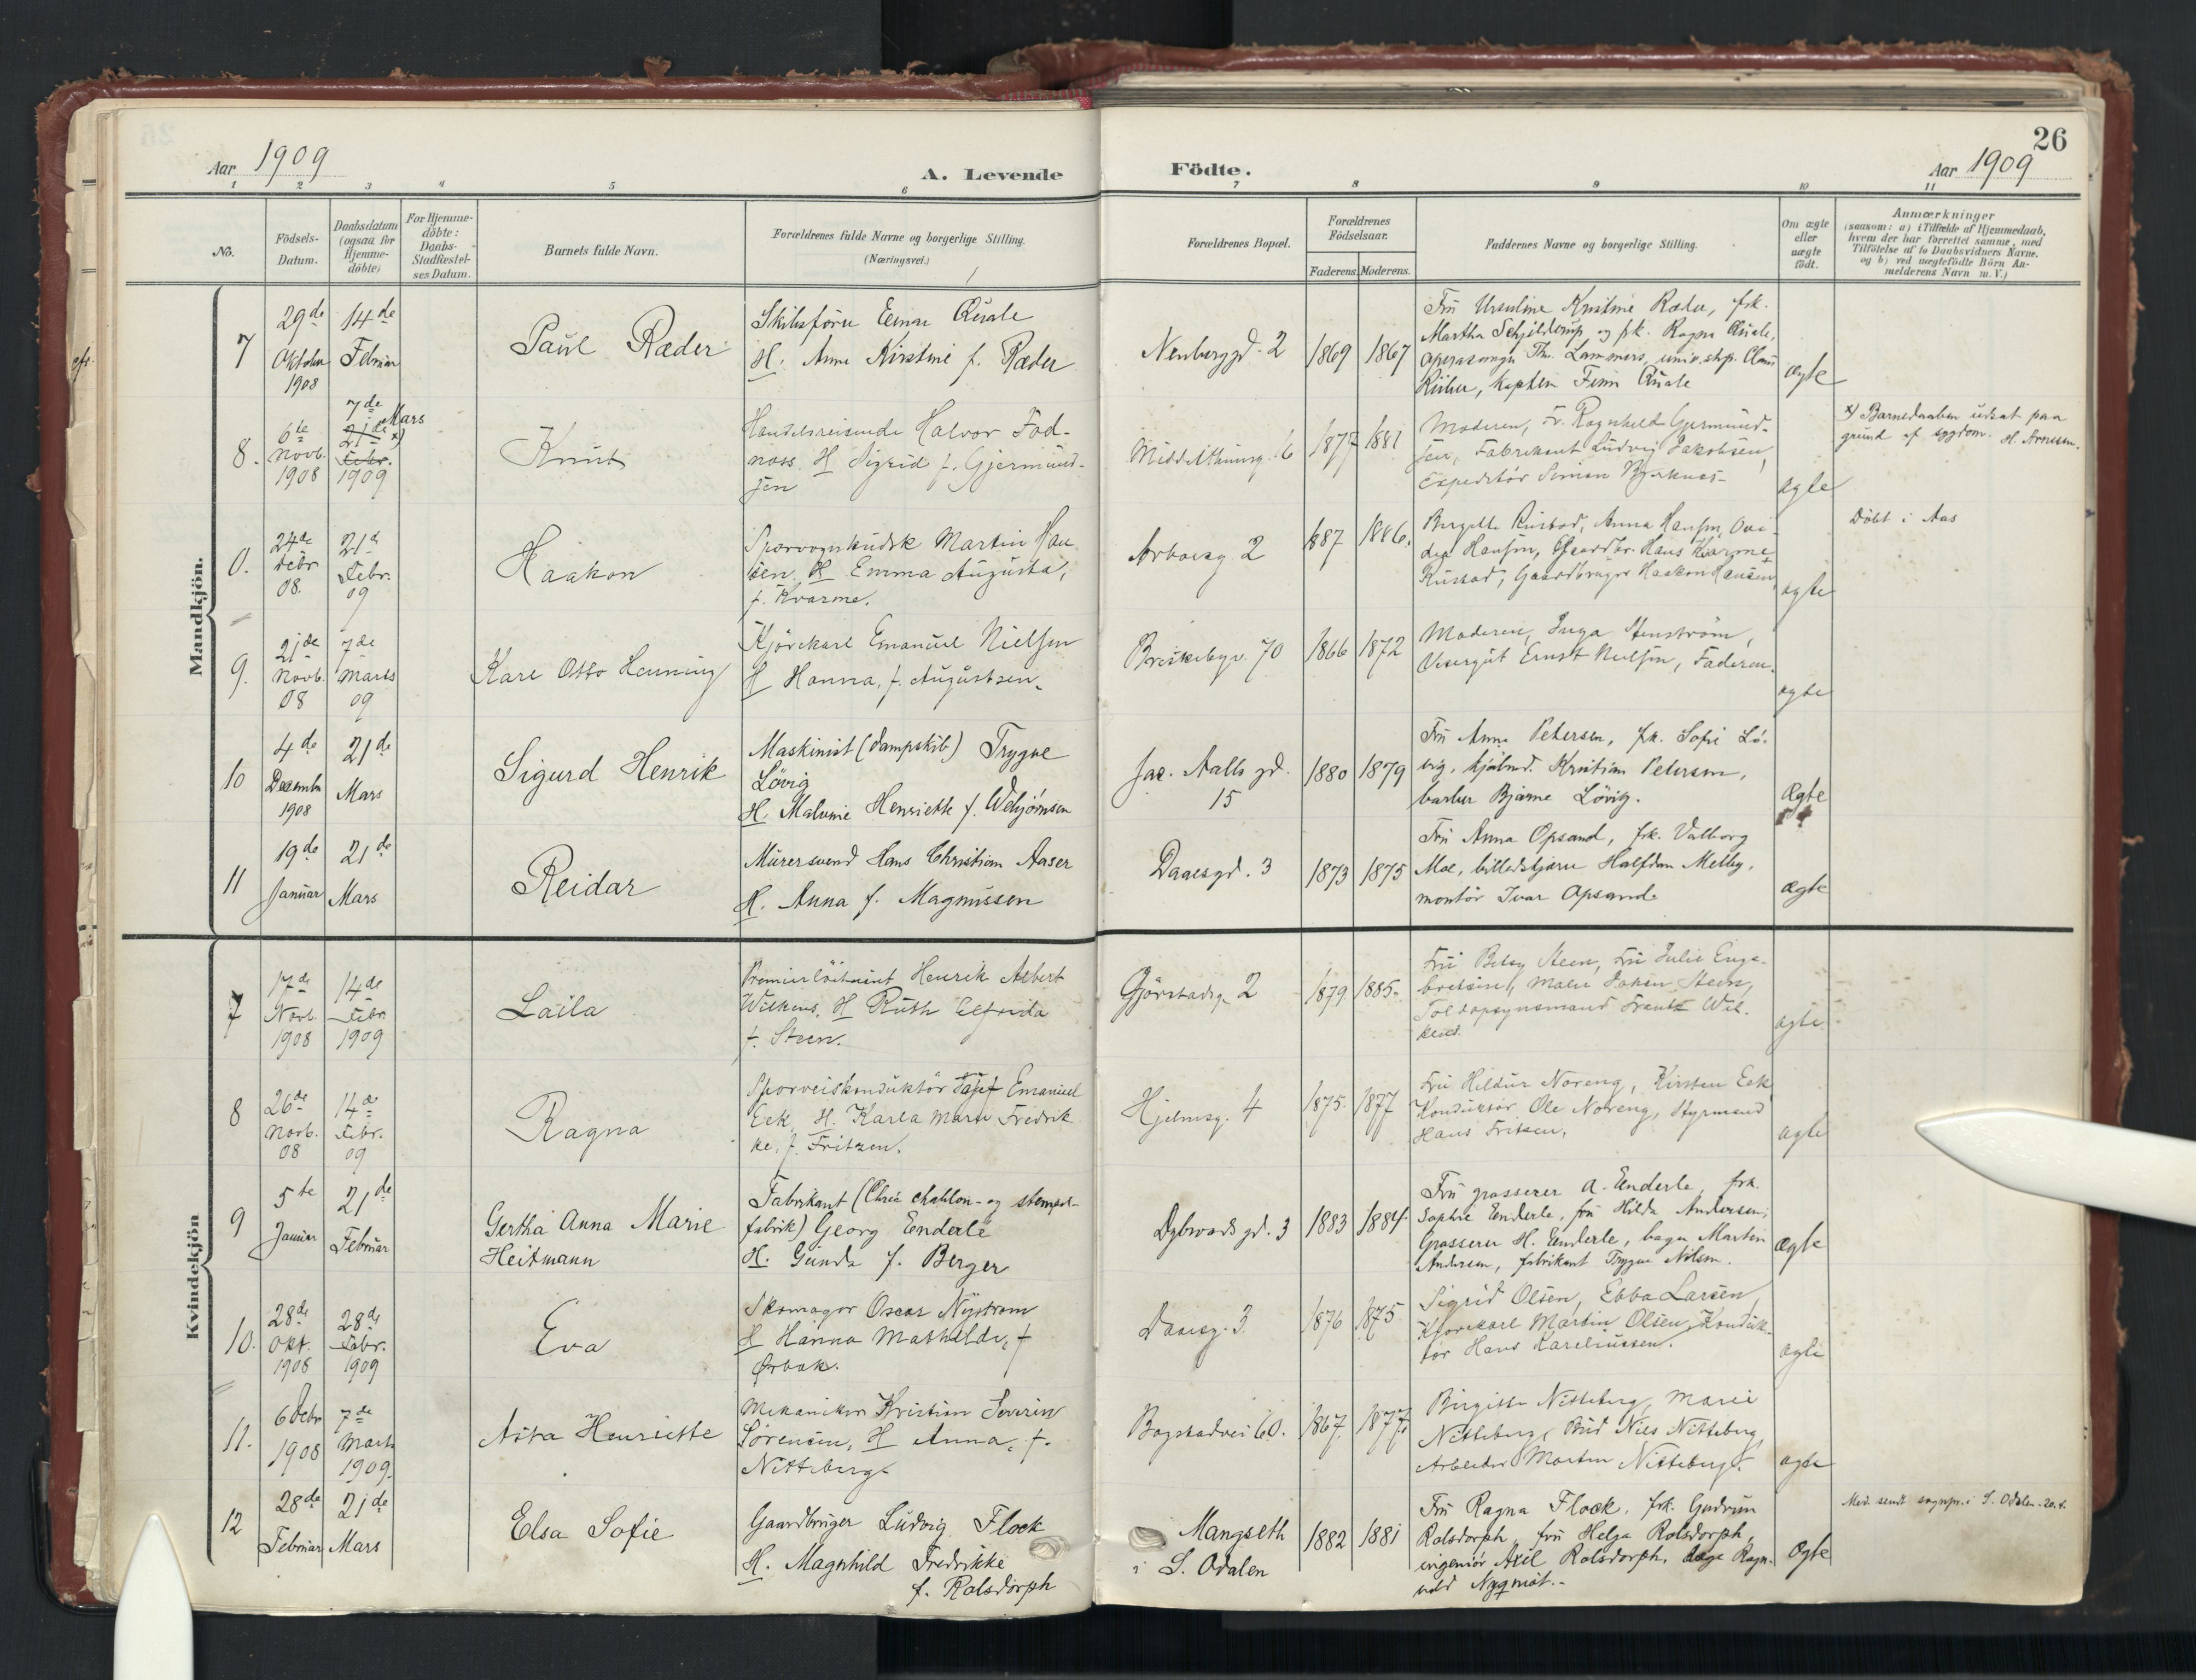 26
Aar 1909
A. Levende
Födte.
Aar 1909
1 2 3 4 5 6 7 8 9 10 11
No.
Födsels-Datum.
Daabsdatum (ogsaa for Hjemme-döbte)
For Hjemme-döbte: Daabs-Stadfæstel-ses Datum.
Barnets fulde Navn.
Forældrenes fulde Navne og borgerlige Stilling.
(Næringsvei.)
Forældrenes Bopæl.
Forældrenes Födselsaar.
Faderens. Moderens.
Faddernes Navne og borgerlige Stilling.
Om ægte eller uægte födt.
Anmærkninger
(saasom: a) i Tilfælde af Hjemmedaab,
hvem der har forrettet samme, med
Tilföielse af to Daabsvidners Navne.
og b) ved uægtefödte Börn An-
melderens Navn m. V.)
Mandkjön.
7
29de Oktober 1908
14de Februar
Paul Ræder
Skibsförer Einar Quale
H. Anna Kirstine f. Ræder
2
1869 1867
Fru Ursuline Kristine Ræder, frk.
Martha Schjelderup og frk. Ragna Quale,
operasanger Th. Lammers,
kaptein Finn Quale
ægte
8.
6te Novb. 1908
7de Mars
21de Febr. 1909 x)
Knut
Handelsreisende Halvor Fod-
næss. H Sigrid f. Gjermund-
sen
Middelthunsg. 6
1877 1881
Moderen, Fr. Ragnhild Gjermund-
sen, Fabrikant Ludvig Jakobsen,
Expeditör Simon Bjerknes
ægte
x) Barnedaaben udsat paa
grund af sygdom. H. Arnesen.
0.
24de Febr 08.
21de Febr. 09
Haakon
Sporvognskudsk Martin Han
sen. H Emma Augusta,
f. Kvarme.
Arboesg 2
1887 1886.
Anna Hansen,
Hansen, Gaardbr. Hans Kvarme
Rustad, Gaardbruger Haakon Hansen
ægte
Döbt i Aas
9.
21de Novb. 08
7de Marts 09
Karl Otto Henning
Kjörekarl Emanuel Nielsen
H Hanna, f. Augustsen.
Briskebyv. 70
1866 1872
Moderen, Inga Stenström,
Visergut Ernst Nielsen, Faderen.
ægte
10
4de Decembr 1908
21de Mars
Sigurd Henrik
Maskinist (dampskib) Trygve
Lövig
H. Malvine Henriette f.
Jac. Aalls gd.
15
1880 1879
Fru Anna Petersen, frk. Sofie Lö-
vig, Kristian Petersen,
barber Bjarne Lövig.
Ægte
11
19de Januar
21de Mars
Reidar
Murersvend Hans Christian Aaser
H. Anna f. Magnussen
Daaesgd. 3
1873 1875
Fru Anna Opsand, frk. Valborg
Moe, billedskjærer Halfdan Melby,
montör Ivar Opsand
ægte
Kvindekjön
7
17de Novb. 1908
14de Febr 1909
Laila
Premierlöitnant Henrik Albert
Wilkens. H Ruth Elfrida
f. Steen.
Gjörstadsg. 2
1879 1885.
Fru Betsy Steen, Fru Julie Enge-
bretsen, Maler Steen,
Toldopsynsmand Frantz Wil-
kens.
ægte
8
26de Novb. 08
14de Febr. 09
Ragna
Sporveiskonduktör Emanuel
Eek, H. Karla Marie Fredrik
ke, f. Fritzen.
Hjelmsg. 4
1875. 1877
Fru Hildur Noreng, Kirsten Eek
Konduktör Ole Noreng, Styrmand
Hans Fritzen.
ægte
9
5te Januar
21de Februar
Gertha Anna Marie
Heitmann
Fabrikant (Chra chablon- og stempel-
fabrik) Georg Enderle
H. Gunda f. Berger
Dybwads gd. 3
1883 1884.
Fru grosserer A. Enderle, frk.
Sophie Enderle, fru Hilda Andersen,
Grosserer H. Enderle, bager Martin
Andersen, fabrikant Trygve Nilsen.
Ægte
10.
28de Okt. 1908
28de Febr. 1909
Eva
Skomager Oscar Nyström
H Hanna Mathilde, f
Ørbæk.
Daaesg. 3
1876 1875.
Sigrid Olsen, Ebba Larsen,
Kjörekarl Martin Olsen, Konduk-
tör Hans Kareliussen.
ægte
11.
6 Debr 1908
7de Marts 1909.
Asta Henriette
Mekaniker Kristian Severin
Sörensen, H Anna, f.
Nitteberg
Bogstadvei 60.
1867. 1877.
Birgitte Nitteberg, Marie
Nitteberg, Bud Nils Nitteberg
Arbeider Morten Nitteberg.
ægte
12
28de Februar
21de Mars
Elsa Sofie
Gaardbruger Ludvig Flock
H. Magnhild Fredrikke
f. Rolsdorph
Mangseth
i S. Odalen
1882 1881
Fru Ragna Flock, frk. Gudrun
Rolsdorph, fru Helga Rolsdorph,
ingeniör Axel Rolsdorph, læge Ragn-
vald Nyqmat.
Ægte
Med. sendt sognepr. i S. Odalen